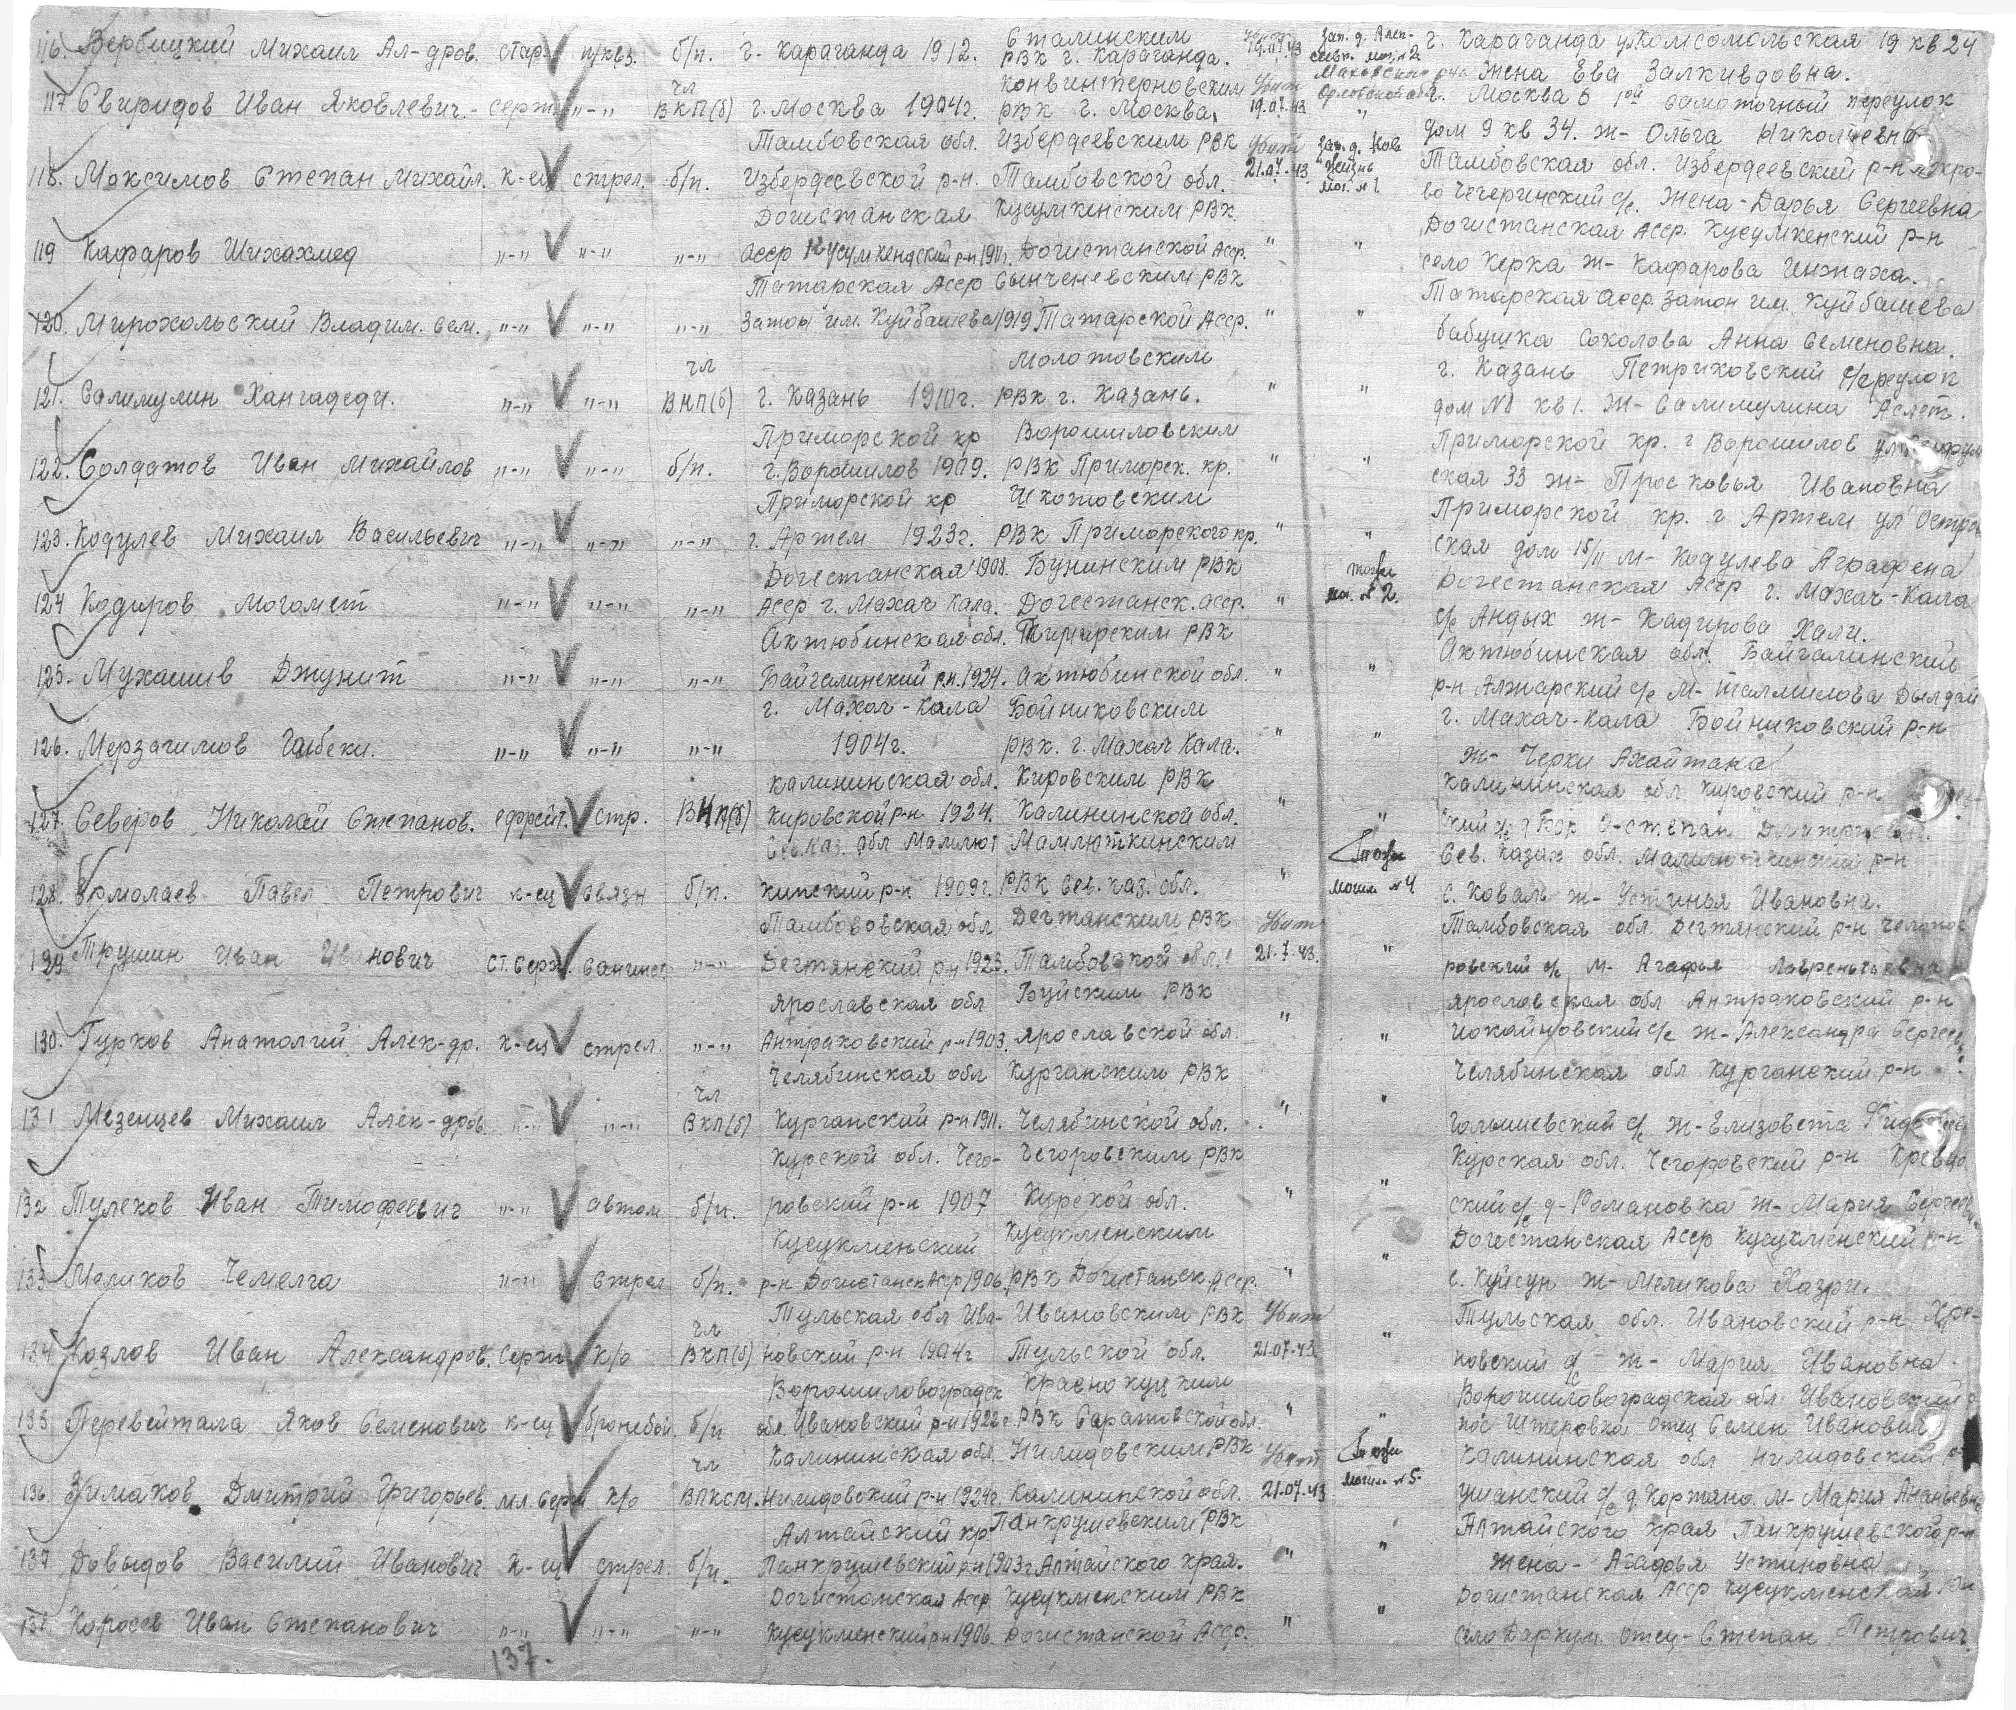 116. Вербицкий Михаил Ал-дров. стар. п/квз. б/п. г. Караганда 1912. Сталинским РВК г. Караганда. Убит 19.07.43 зап. д. Алек- г. Караганда ул Комсомольская 19 кв 24
Жена Ева Залкивдовна.
117 Свиридов Иван Яковлевич.- серж. "-" чл ВКП(б) г. Москва 1904г. Коминтерновским РВК г. Москва. Убит 19.07.43 " г. Москва 6 1ой самоточный переулок
дом 9 кв 34. ж- Ольга Николаевна
118. Максимов Степан Михайл. к-ец стрел. б/п. Тамбовская обл. Избердеевской р-н. Избердеевским РВК Тамбовской обл. Убит 21.07.43 зап. д. Нов. Жизнь мог. №1. Тамбовская обл. Избердеевский р-н Покро-
во Чечеринский с/с. Жена- Дарья Сергеевна
119 Кафаров Шихахмед "-" "-" "-" Догистанская Асср Кусумкендский р-н 1911г. Кусумкенским РВК Догистанской Асср. " " Догистанская Асср. Кусумкенский р-н
село Керка ж- Кафарова Инжаха.
120. Мирохольский Владим. Сем. "-" "-" "-" Татарская Асср Затон им. Куйбашева 1919 Сынченевским РВК Татарской Асср. " " Татарская Асср. Затон им. Куйбашева
бабушка Соколова Анна Семеновна.
121. Салимулин Хангадеди. "-" "-" чл ВКП(б) г. Казань 1910г. Молотовским РВК г. Казань. " " г. Казань Петриковский переулок
дом №1 кв 1. ж- Салимулина Аслет.
122. Солдатов Иван Михайлов "-" "-" б/п. Приморской кр г. Ворошилов 1909. Ворошиловским РВК Приморск. кр. " " Приморской кр. г Ворошилов ул
ская 33 ж- Просковья Ивановна
123. Кодулев Михаил Васильевич "-" "-" "-" Приморской кр г. Артем 1923г. Шкотовским РВК Приморского кр. " " Приморской кр. г Артем ул Остров
ская дом 15/11 м- Кодулева Аграфена
124 Кадиров Могомет "-" "-" "-" Догестанская 1908. Асср г. Махач Кала. Бунинским РВК Догестанск. Асср. " тоже мог. №2. Догестанская Асср г. Махач-Кала
с/с Андых ж- Кадирова Хали.
125. Мухашив Джунит "-" "-" "-" Актюбинская обл. Байгалинский р.н. 1924. Темирским РВК Актюбинской обл. " " Актюбинская обл. Байгалинский
р-н Алжарский с/с м- Талмилова Дылдай
126. Мерзагишов Гаибеки. "-" "-" "-" г. Махач-Кала 1904г. Бойниковским РВК. г. Махач Кала. " " г. Махач-Кала Бойниковский р-н
ж- Черки Ахайтана
127. Северов Николай Степанов. ефрейт. стр. ВКП(б) Калининская обл. Кировской р-н 1924. Кировским РВК Калининской обл. " " Калининская обл Кировский р-н
кий с/с д Бор О-Степан Дмитриевич.
128. Ермолаев Павел Петрович к-ец связн б/п. Сев. каз. обл Мамлют кинский р-н 1909г. Мамлюткинским РВК Сев. каз. обл. " тоже могил №4 Сев. казах обл. Мамлюткинский р-н
с. Коваль ж- Устинья Ивановна.
129 Трушин Иван Иванович ст. серж. санинст. "-" Тамбововская обл Дегтянский р-н 1923. Дегтянским РВК Тамбовской обл. Убит 21.7.43. " Тамбовская обл. Дегтянский р-н
ровский с/с м- Агафья Лаврентьевна
130. Гурков Анатолий Алек-др. к-ец стрел. "-" Ярославская обл Антраковский р-н 1903. Буйским РВК Ярославской обл. " " Ярославская обл Антраковский р-н
Иокаймовский с/с ж- Александра Сергеев
131 Мезенцев Михаил Алек-дров. "-" "-" чл ВКП(б) Челябинская обл Курганский р-н 1911. Курганским РВК Челябинской обл. " " Челябинская обл Курганский р-н
Галышевский с/с ж- Елизовета
132 Тулеков Иван Тимофеевич "-" автом б/п. Курской обл. Чего- ровский р-н 1907 Чегоровским РВК Курской обл. " " Курская обл. Чегоровский р-н
ский с/с д- Романовка ж- Мария Сергеев
133 Меликов Чемелга "-" стрел б/п. Кусукменский р-н Догистанск Асср 1906. Кусукменским РВК Догистанск. Асср. " " Догистанская Асср Кусукменский р-н
с. Куйсун ж- Меликова Назри.
134 Козлов Иван Александров. Серж к/о чл ВКП(б) Тульская обл Ива- новский р-н 1904г Ивановским РВК Тульской обл. Убит 21.07.43 " Тульская обл. Ивановский р-н Хре-
новский с/с ж- Мария Ивановна.
135 Перевейтала Яков Семенович к-ец бронебой. б/п Ворошиловоградск обл. Ивановский р-н 1922г. Краснокуцким РВК Саратовской обл. " " Ворошиловоградская обл Ивановский
пос Штеровка отец Семен Иванович
136 Зимаков Дмитрий Григорьев. мл. серж к/о чл ВЛКСМ. Калининская обл Нилидовский р-н 1924г. Нилидовским РВК Калининской обл. Убит 21.07.43 тоже могил №5 Калининская обл Нилидовский р-н
с/с д. Кортяно. м- Мария Ананьевна
137 Довыдов Василий Иванович к-ец стрел. б/п. Алтайский кр Панкрушевский р-н 1903г. Панкрушевским РВК Алтайского края. " " Алтайского края Панкрушевского р-н
жена- Агафья Устиновна
138 Каросев Иван Степанович "-" "-" "-" Догистанская Асср Кусукменский р-н 1906 Кусукменским РВК Догистанской Асср. " " Догистанская Асср Кусукменской р-н
село Даркум. отец- Степан Петрович.
137.